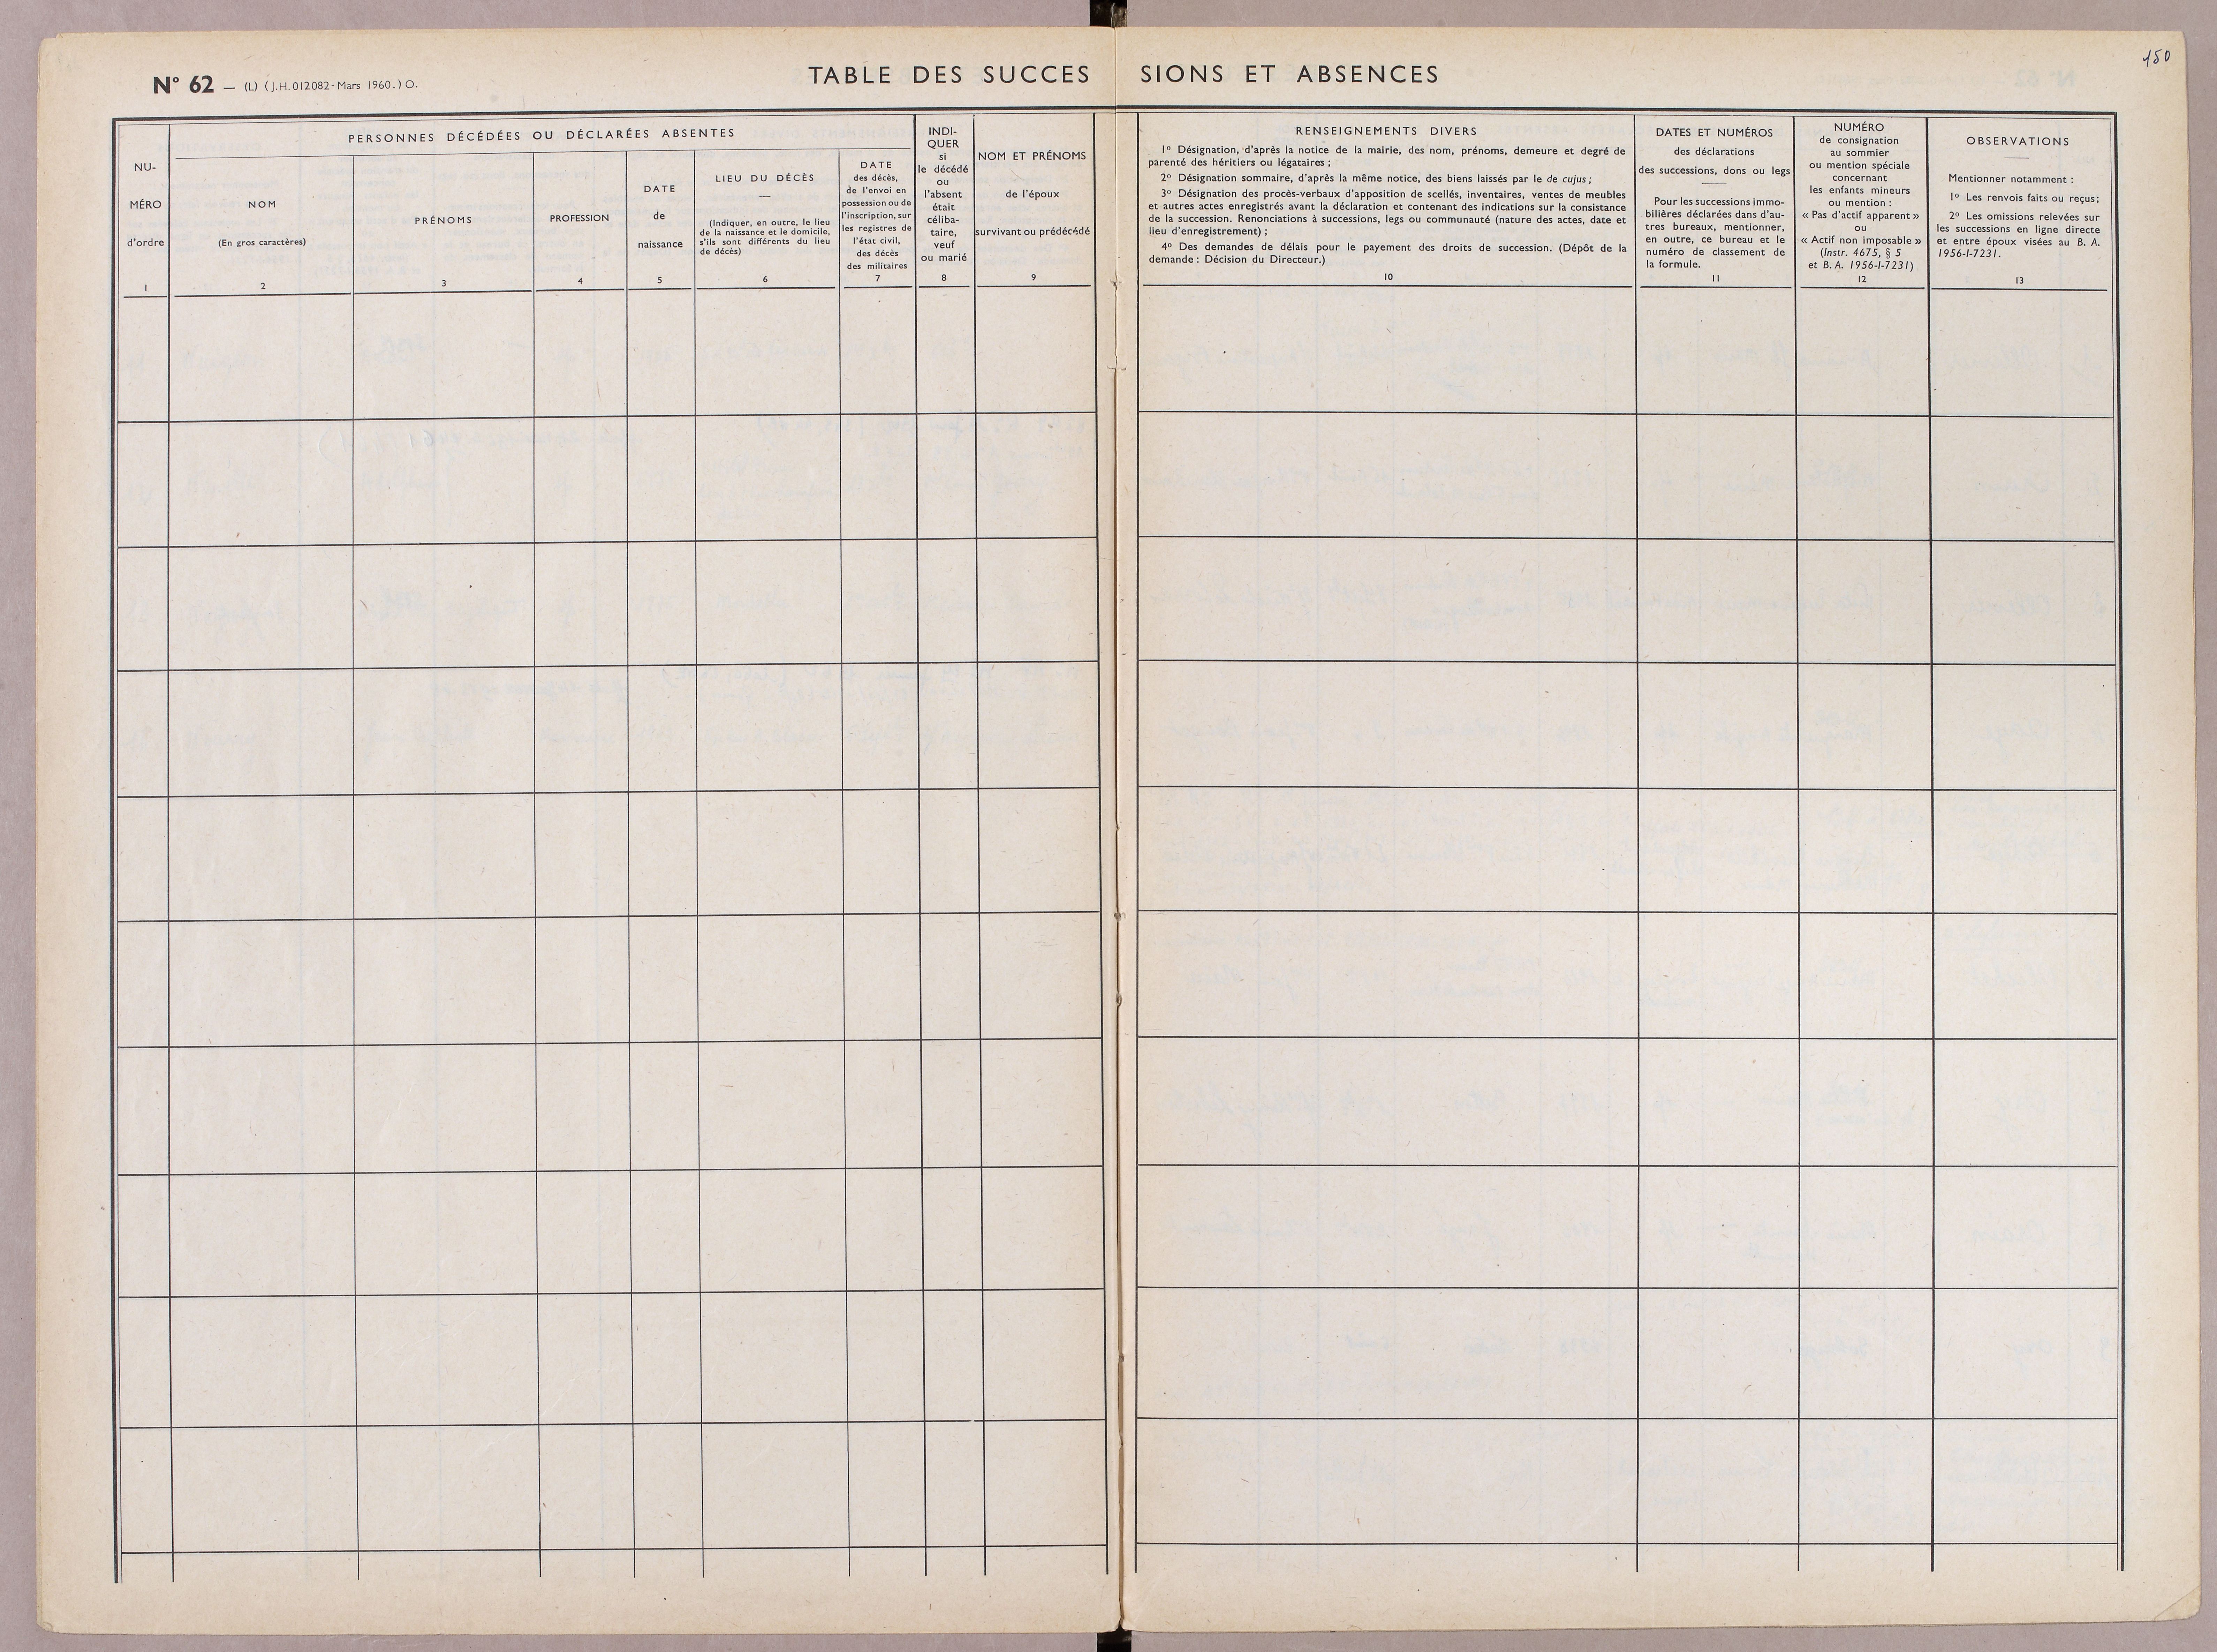 150
N° 62 — (L) (J.H.012082-Mars 1960.) O.
TABLE DES SUCCESSIONS ET ABSENCES
NU-
MÉRO
d'ordre
1
PERSONNES DÉCÉDÉES OU DÉCLARÉES ABSENTES
NOM
(En gros caractères)
2
PRÉNOMS
3
PROFESSION
4
DATE
de
naissance
5
LIEU DU DÉCÈS
(Indiquer, en outre, le lieu
de la naissance et le domicile,
s'ils sont différents du lieu
de décès)
6
DATE
des décès,
de l'envoi en
possession ou de
l'inscription, sur
les registres de
l'état civil,
des décès
des militaires
7
INDI-
QUER
si
le décédé
ou
l'absent
était
céliba-
taire,
veuf
ou marié
8
NOM ET PRÉNOMS
de l'époux
survivant ou prédécédé
9
RENSEIGNEMENTS DIVERS
1° Désignation, d'après la notice de la mairie, des nom, prénoms, demeure et degré de
parenté des héritiers ou légataires ;
2° Désignation sommaire, d'après la même notice, des biens laissés par le de cujus ;
3° Désignation des procès-verbaux d'apposition de scellés, inventaires, ventes de meubles
et autres actes enregistrés avant la déclaration et contenant des indications sur la consistance
de la succession. Renonciations à successions, legs ou communauté (nature des actes, date et
lieu d'enregistrement) ;
4° Des demandes de délais pour le payement des droits de succession. (Dépôt de la
demande : Décision du Directeur.)
10
DATES ET NUMÉROS
des déclarations
des successions, dons ou legs
Pour les successions immo-
bilières déclarées dans d'au-
tres bureaux, mentionner,
en outre, ce bureau et le
numéro de classement de
la formule.
11
NUMÉRO
de consignation
au sommier
ou mention spéciale
concernant
les enfants mineurs
ou mention :
« Pas d'actif apparent »
ou
« Actif non imposable »
(Instr. 4675, § 5
et B. A. 1956-I-7231)
12
OBSERVATIONS
Mentionner notamment :
1° Les renvois faits ou reçus;
2° Les omissions relevées sur
les successions en ligne directe
et entre époux visées au B. A.
1956-I-7231.
13